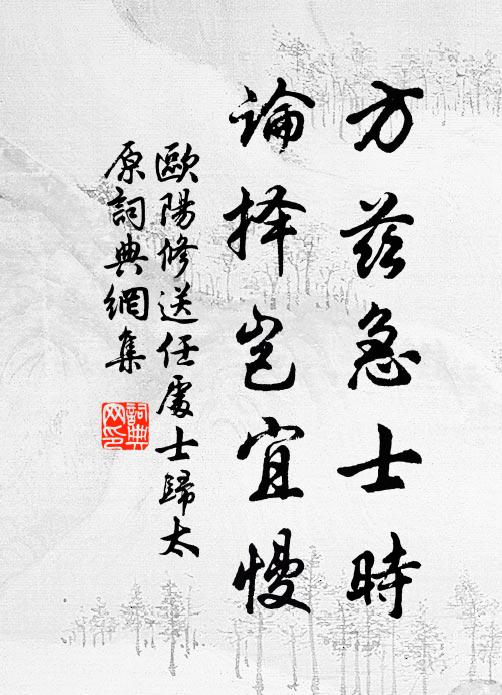 方茲急士時
論择岂宜慢
歐陽修送任處士歸太
原詞典網集
詞典网印